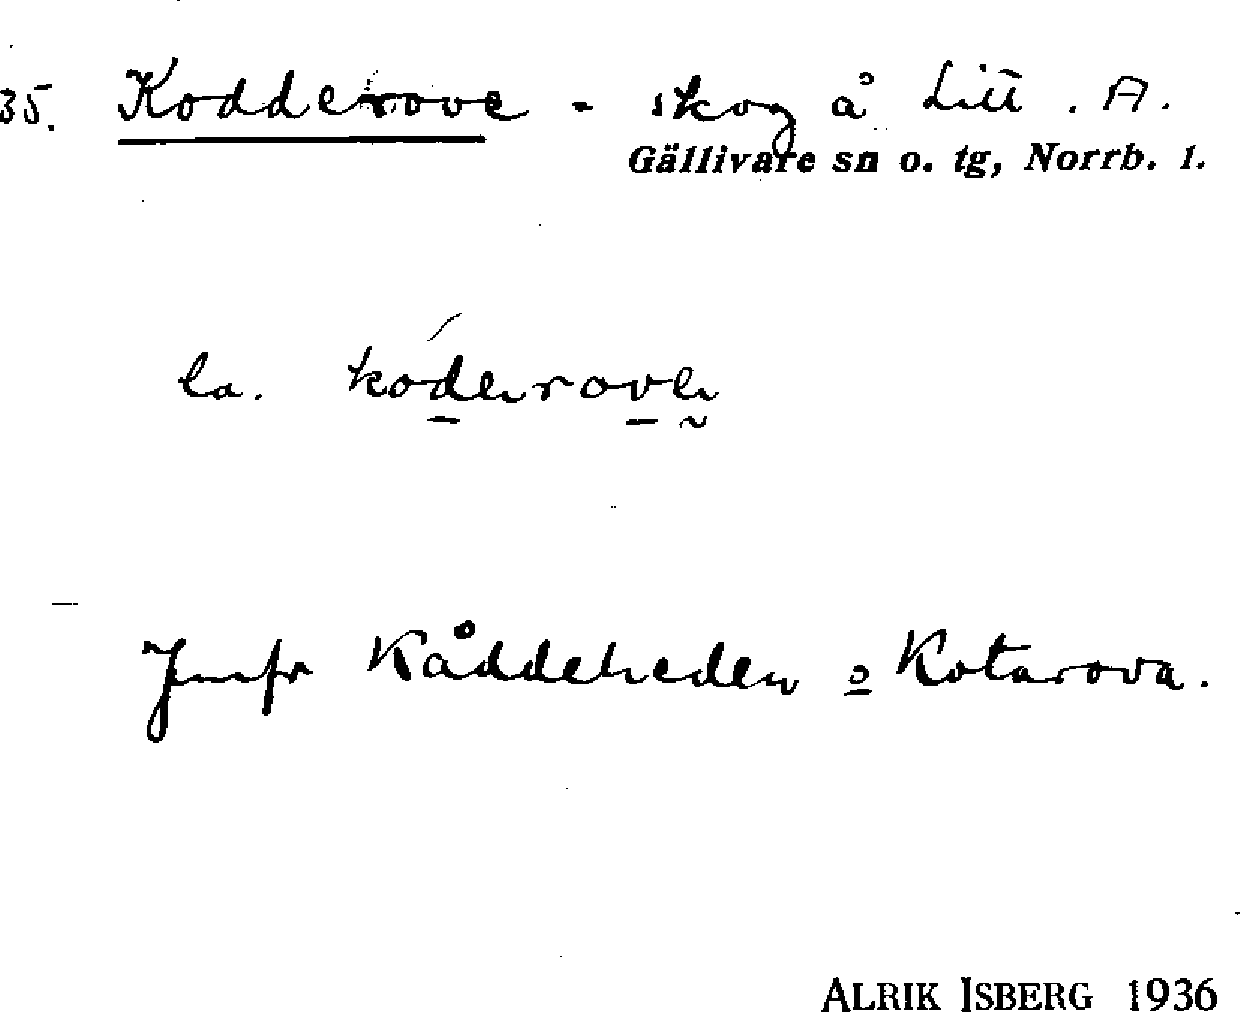 35. Kodderove - skog å Litt. A.
Gällivare sn o. tg, Norrb. l.
la. kóderove
Jmfr Kåddeheden o Kotarova.
ALRIK ISBERG 1936